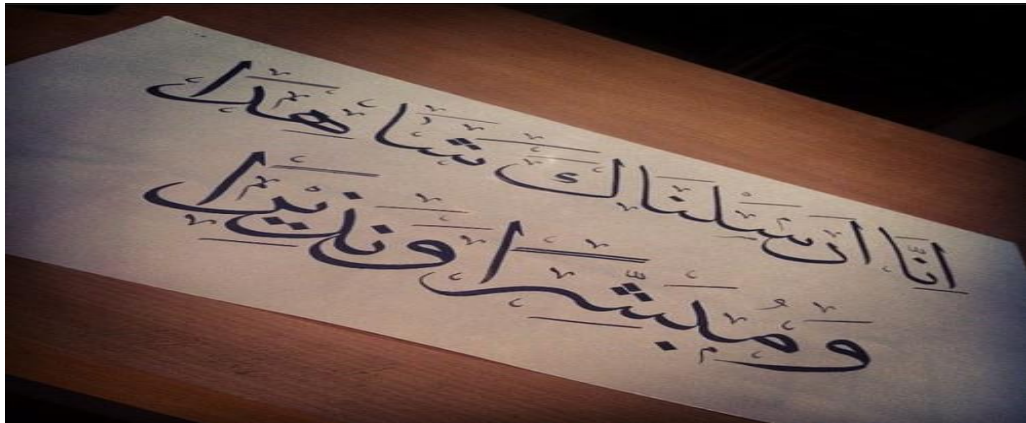 انّا ارسلناك شاهدا
ومبشّرا ونذيرا